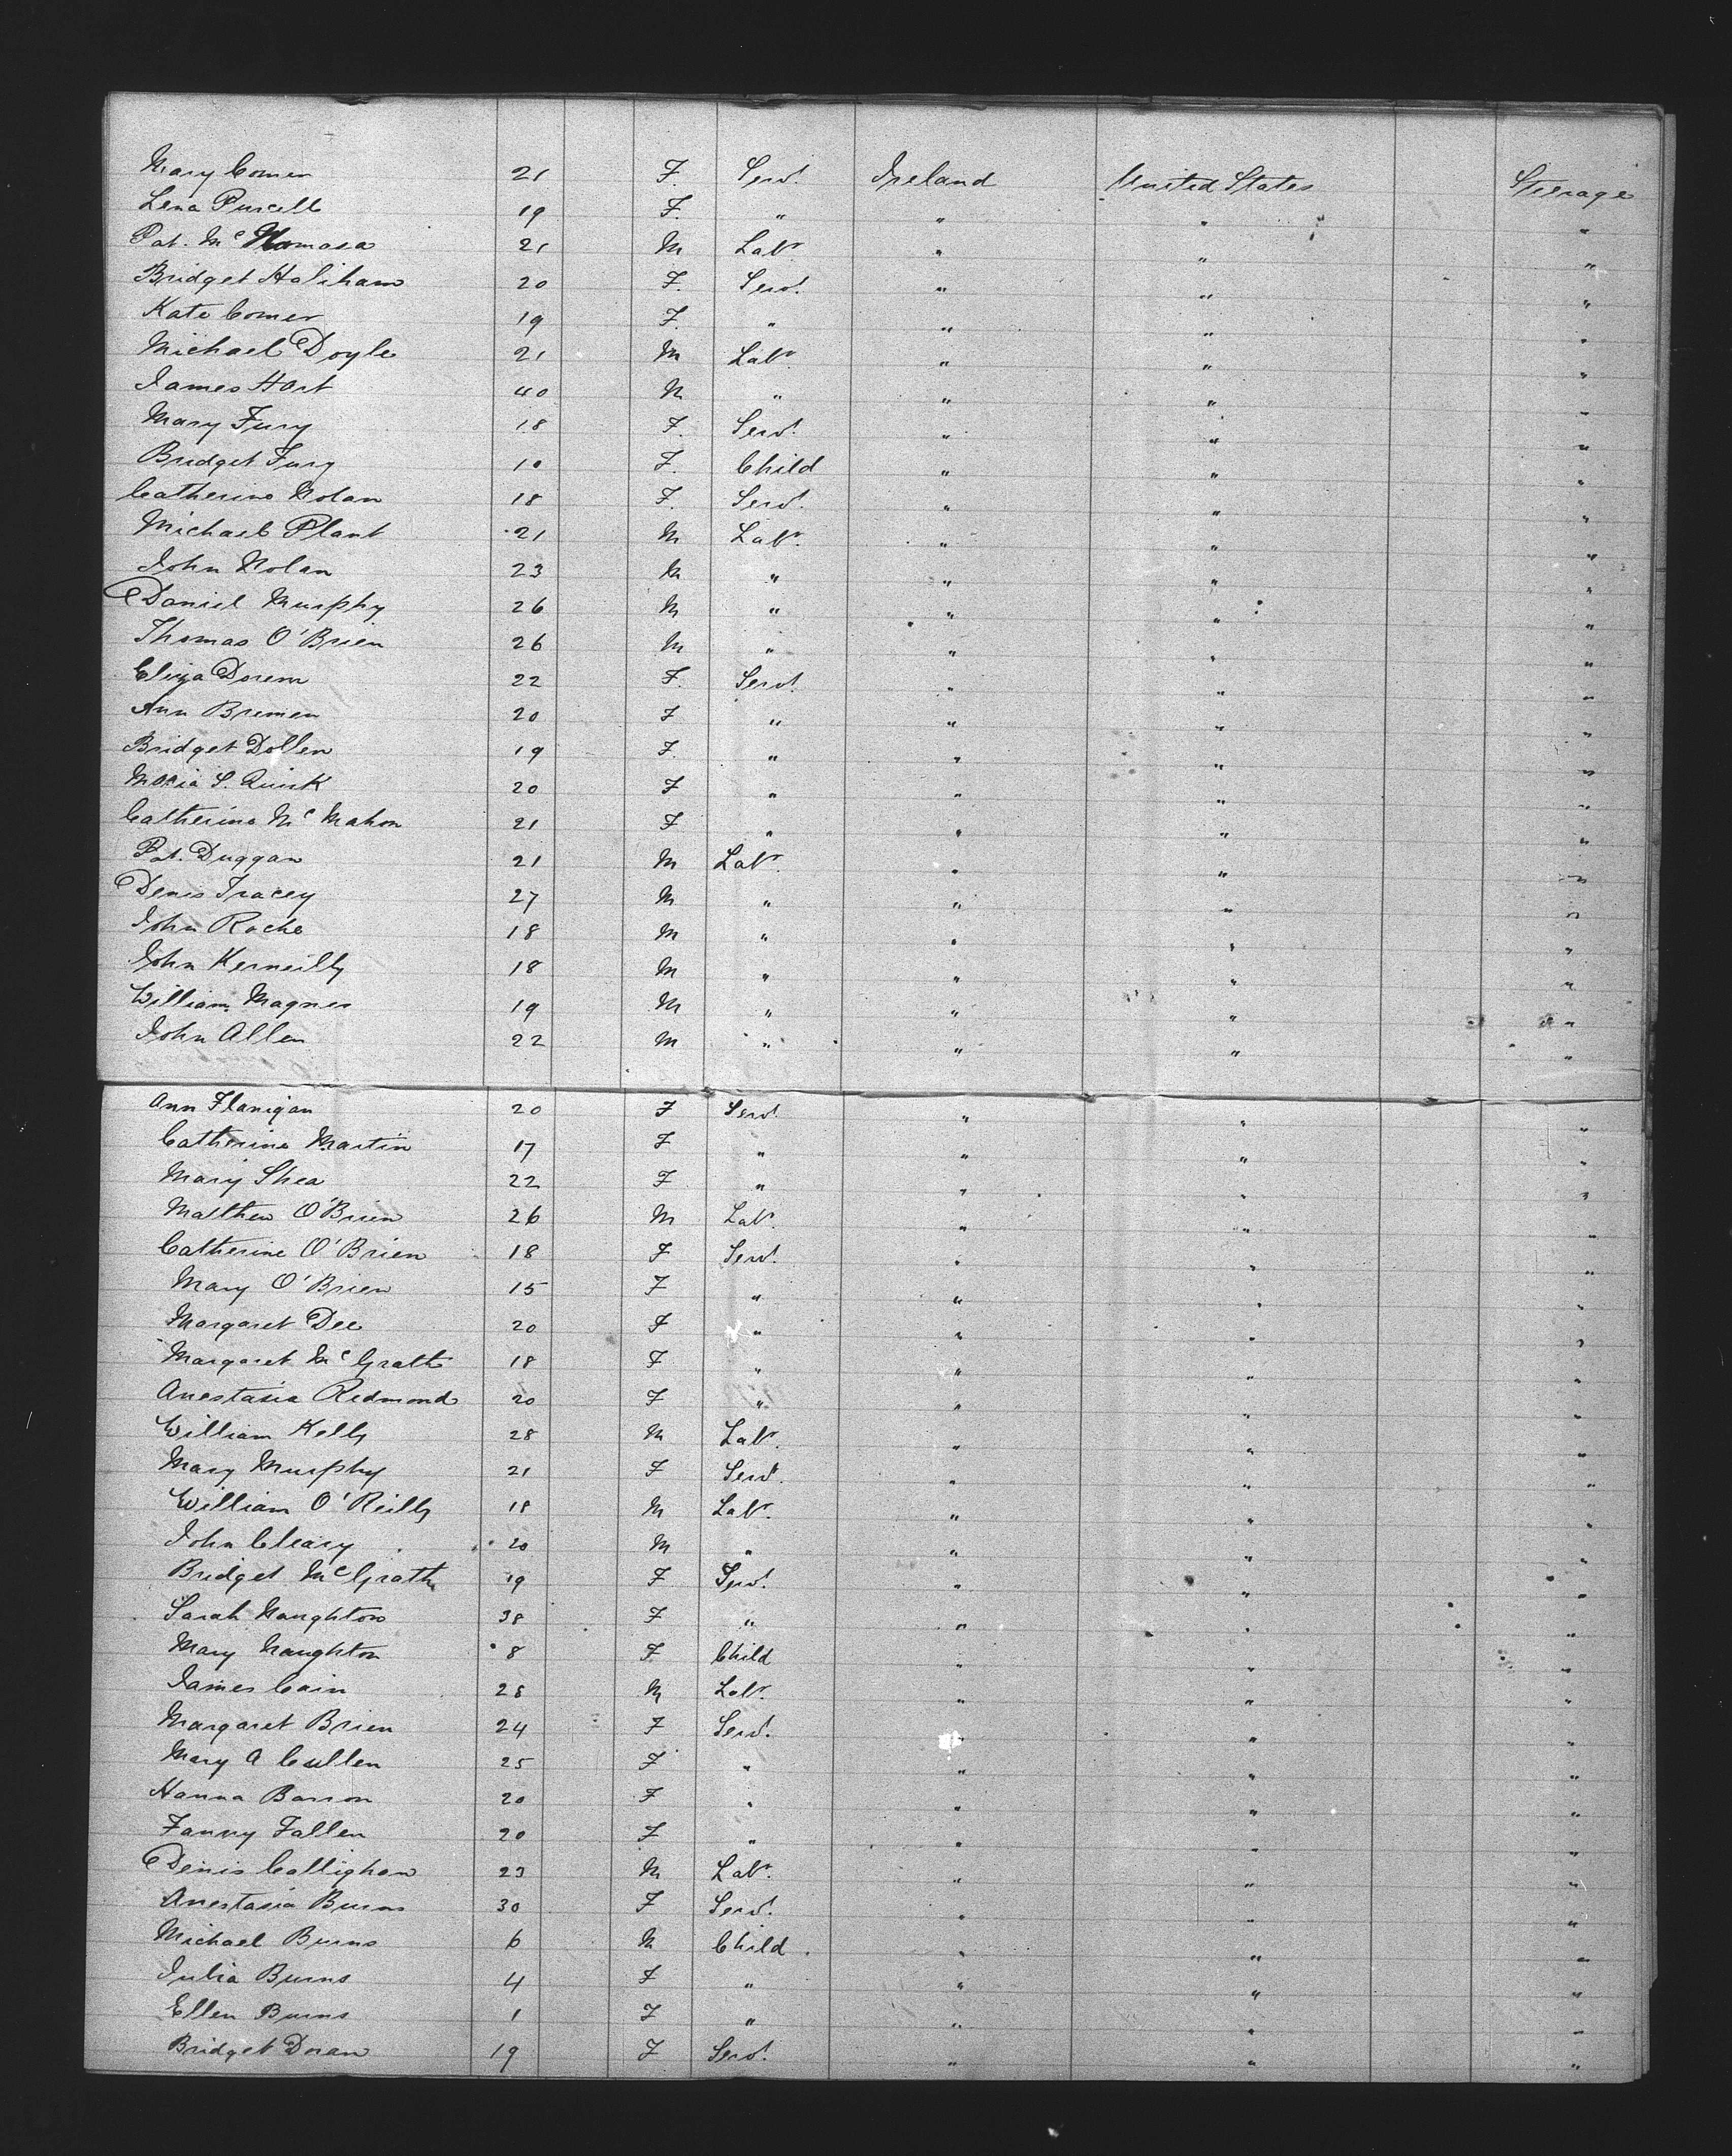 Mary Comer 21 F. Servt. Ireland United States Steerage
Lena Purcell 19 F. " " " "
Pat. McNamara 21 M Labr. " " "
Bridget Haliham 20 F. Servt. " " "
Kate Comer 19 F. " " " "
Michael Doyle 21 M Labr. " " "
James Hart 40 M " " " "
Mary Fury 18 F. Servt. " " "
Bridget Fury 10 F. Child " " "
Catherine Nolan 18 F. Servt. " " "
Michael Plant 21 M Labr. " " "
John Nolan 23 M " " " "
Daniel Murphy 26 M " " " "
Thomas O'Brien 26 M " " " "
Eliza Doren 22 F. Servt. " " "
Ann Bremen 20 F " " " "
Bridget Dollen 19 F. " " " "
Maria S. Quirk 20 F " " " "
Catherine McMahon 21 F " " " "
Pat. Duggan 21 M Labr. " " "
Denis Tracey 27 M " " " "
John Roche 18 M " " " "
John Kerneilly 18 M " " " "
William Magner 19 M " " " "
John Allen 22 M " " " "
Ann Flanigan 20 F Servt. " " "
Catherine Martin 17 F " " " "
Mary Shea 22 F " " " "
Matthew O'Brien 26 M Labr. " " "
Catherine O'Brien 18 F Servt. " " "
Mary O'Brien 15 F " " " "
Margaret Dee 20 F " " " "
Margaret McGrath 18 F " " " "
Anestasia Redmond 20 F " " " "
William Kelly 28 M Labr. " " "
Mary Murphy 21 F Servt. " " "
William O'Reilly 18 M Labr. " " "
John Cleary 20 M " " " "
Bridget McGrath 19 F Servt. " " "
Sarah Naughton 38 F " " " "
Mary Naughton 8 F Child " " "
James Cain 28 M Labr. " " "
Margaret Brien 24 F Servt. " " "
Mary A Cullen 25 F " " " "
Hanna Barron 20 F " " " "
Fanny Fallen 20 F " " " "
Denis Callighan 23 M Labr. " " "
Anestasia Burns 30 F Servt. " " "
Michael Burns 6 M Child " " "
Julia Burns 4 F " " " "
Ellen Burns 1 F " " " "
Bridget Doran 19 F Servt. " " "